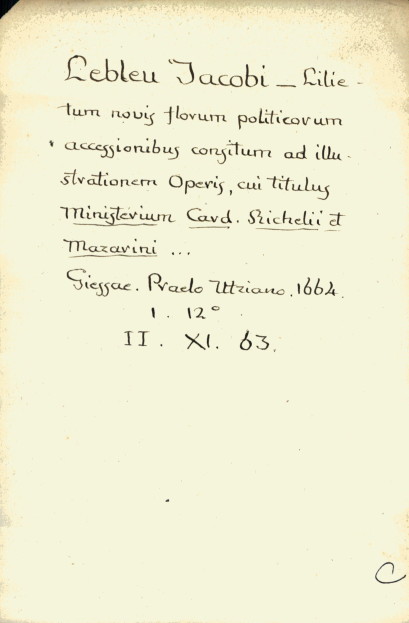 Lebleu Jacobi _ Lilie-
tum novis florum politicorum
accessionibus consitum ad illu-
strationem Operis, cui titulus
Ministerium Card. Richelii et
Mazarini ...
Giessae. Praelo Utziano. 1664.
1. 12°
II. XI. 63.
C